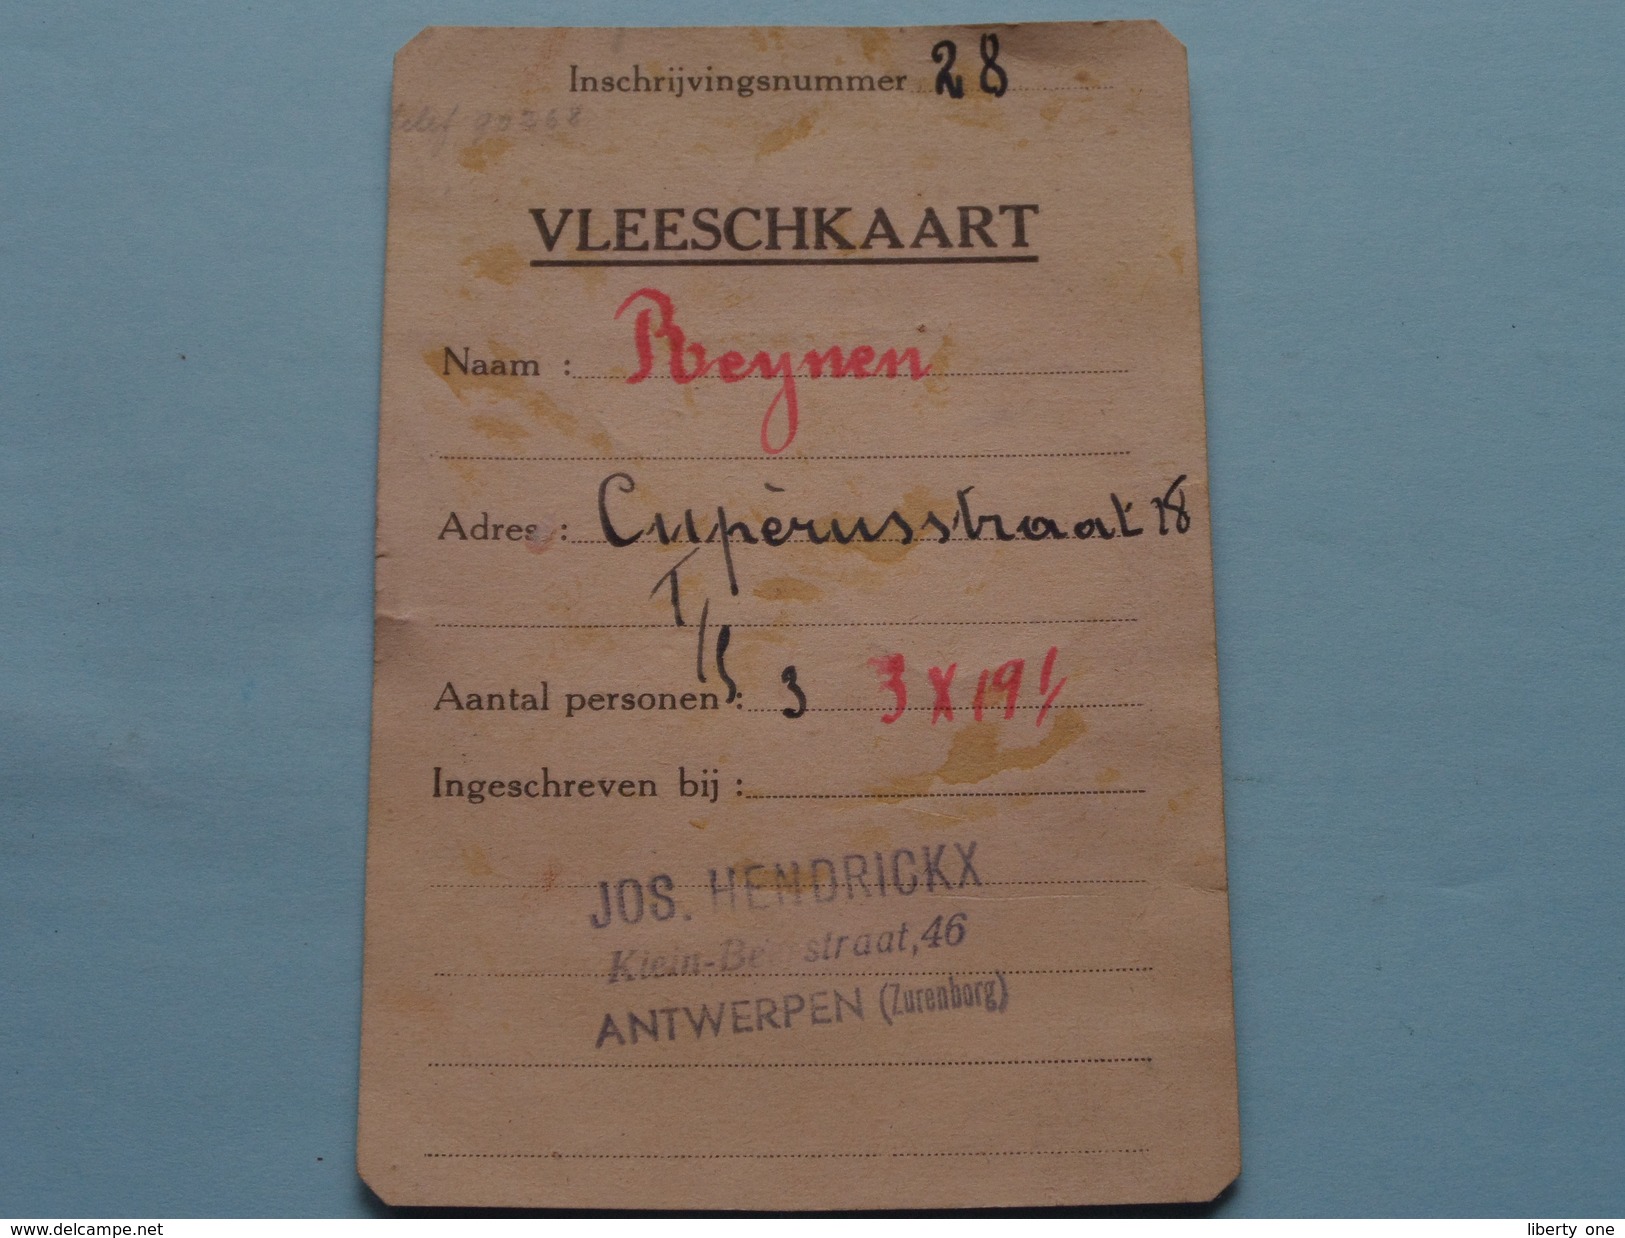 Inschrijvingsnummer 28
telef 90268
VLEESCHKAART
Naam : Reynen
Adres : Cupèrusstraat 18
Aantal personen : 3 3 X 19
Ingeschreven bij :
JOS. HENDRICKX
Klein-Beerstraat, 46
ANTWERPEN (Zurenborg)
www.delcampe.net
liberty one